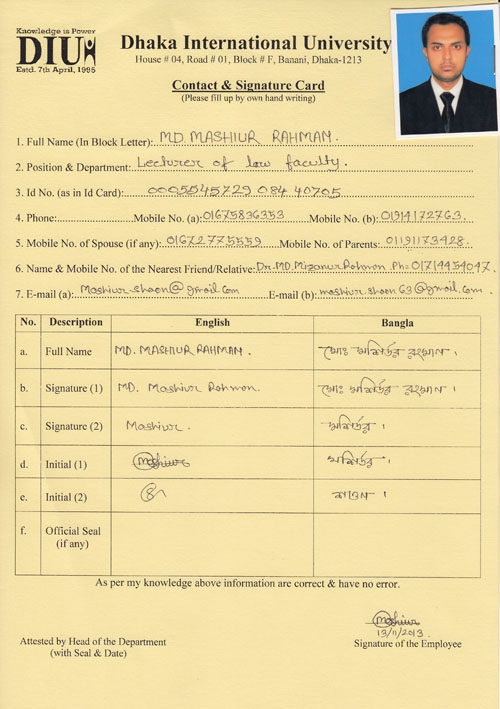 Knowledge is Power
DIU
Estd. 7th April, 1995
Dhaka International University
House # 04, Road # 01, Block # F, Banani, Dhaka-1213
Contact & Signature Card
(Please fill up by own hand writing)
1. Full Name (In Block Letter): MD. MASHIUR RAHMAN.
2. Position & Department: Lecturer of law faculty.
3. Id No. (as in Id Card): 0005545729 084 40705
4. Phone: Mobile No. (a): 01675836353 Mobile No. (b): 01914172763.
5. Mobile No. of Spouse (if any): 01672775559 Mobile No. of Parents: 01191173428.
6. Name & Mobile No. of the Nearest Friend/Relative: Dr. MD. Mizanur Rahman. Ph: 01714454047.
7. E-mail (a): Mashiur.shaon@gmail.com E-mail (b): mashiur.shaon63@gmail.com.
No. Description English Bangla
a. Full Name MD. MASHIUR RAHMAN. মোঃ মশিউর রহমান।
b. Signature (1) MD. Mashiur Rahman. মোঃ মশিউর রহমান।
c. Signature (2) Mashiur. মশিউর।
d. Initial (1) Mashiur মশিউর।
e. Initial (2) শাওন।
f. Official Seal
(if any)
As per my knowledge above information are correct & have no error.
Mashiur
13/11/2013.
Attested by Head of the Department Signature of the Employee
(with Seal & Date)